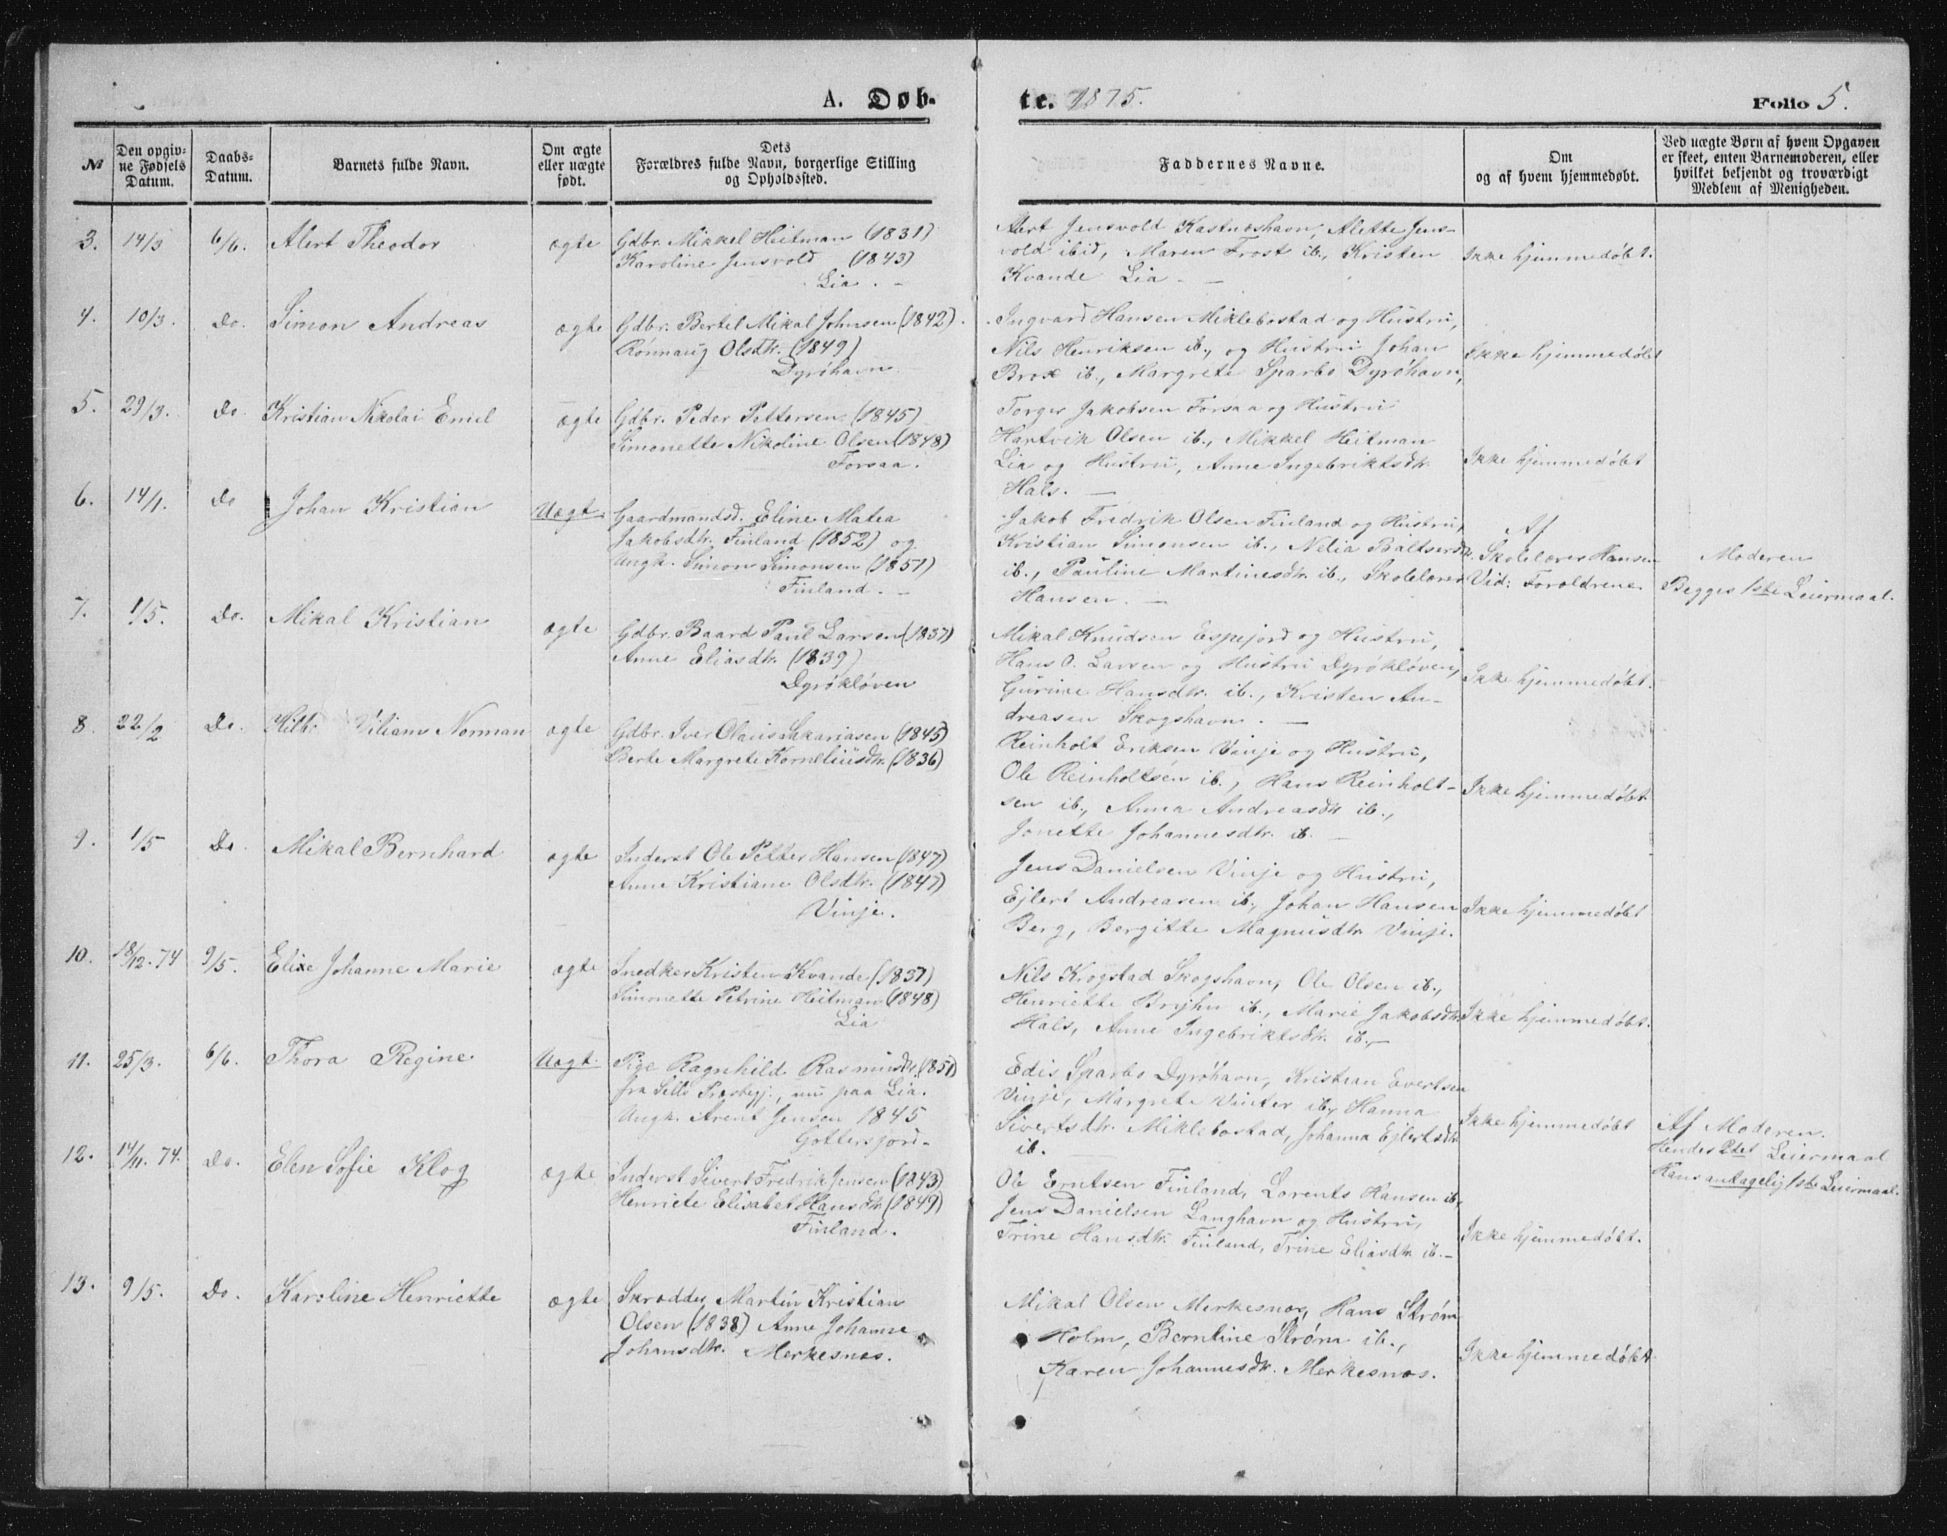 A. Døb- te. 1875. Folio 5.
№ | Den opgiv- ne Fødsels Datum. | Daabs- Datum. | Barnets fulde Navn. | Om ægte eller uægte født. | Dets Forældres fulde Navn, borgerlige Stilling og Opholdssted. | Faddernes Navne. | Om og af hvem hjemmedøbt. | Ved uægte Børn af hvem Opgaven er skeet, enten Barnemoderen, eller hvilket bekjendt og troværdigt Medlem af Menigheden.
3. 14/3 6/6. Alert Theodor ægte
Gdbr. Mikkel Heitman (1831)
Karoline Jensvold (1843)
Lia. -
Alert Jensvold Kastneshavn, Alette Jens-
vold ibid, Maren Frost ib., Kristen
Kvande Lia -
Ikke hjemmedøbt.
4. 10/3. Do. Simon Andreas ægte
Gdbr. Bertel Mikal Johnsen (1842).
Rønnaug Olsdtr. (1849)
Dyrøhavn
Ingvard Hansen Miklebostad og Hustru,
Nils Henriksen ib., og Hustru Johan
Brox ib., Margrete Sparbo Dyrøhavn,
Ikke hjemmedøbt
5. 29/3. Do. Kristian Nikolai Emil ægte
Gdbr. Peder Pettersen (1845)
Simonette Nikoline Olsen (1848)
Forsaa.
Torger Jakobsen Forsaa og Hustru
Hartvik Olsen ib., Mikkel Heitman
Lia og Hustru, Anne Ingebriktsdtr.
Hals. -
Ikke hjemmedøbt
6. 14/1. Do Johan Kristian Uægt.
Gaardmandsd. Eline Matea
Jakobsdtr. Finland (1852) og
Ungk. Simon Simonsen (1851)
Finland. -
Jakob Fredrik Olsen Finland og Hustru,
Kristian Simonsen ib., Nelia Baltsersdtr.
ib., Pauline Martinesdtr. ib., Skolelærer
Hansen. -
Af
Skolelærer Hansen
Vid: Forældrene
Moderen
Begges 1ste Leiermaal.
7. 1/5. Do. Mikal Kristian ægte
Gdbr. Baard Paul Larsen (1837)
Anne Eliasdtr. (1839)
Dyrøkløven
Mikal Knudsen Espejord og Hustru,
Hans O. Larsen og Hustru Dyrøkløven,
Gurine Hansdtr. ib., Kristen An-
dreasen Skogshavn. -
Ikke hjemmedøbt.
8. 22/2 Do. Hilb. Viliam Norman ægte
Gdbr. Iver Olaus Sakariasen (1845)
Berte Margrete Korneliusdtr. (1836)
Reinholt Eriksen Vinje og Hustru,
Ole Reinholtsen ib., Hans Reinholt-
sen ib., Anna Andreasdtr ib.,
Jonette Johannesdtr. ib. -
Ikke hjemmedøbt.
9. 1/5 Do. Mikal Bernhard ægte
Inderst Ole Petter Hansen (1847)
Anne Kristiane Olsdtr. (1847)
Vinje.
Jens Danielsen Vinje og Hustru,
Ejlert Andreasen ib., Johan Hansen
Berg, Bergitte Magnusdtr. Vinje.
Ikke hjemmedøbt
10. 18/12-74 9/5. Elise Johanne Marie ægte
Snedker Kristen Kvande (1851)
Simonette Petrine Heitman (1848)
Lia
Nils Krogstad Skogshavn, Ole Olsen ib.,
Henriette Brynhn ib., Marie Jakobsdtr.
Hals, Anne Ingebriktsdtr. ib. -
Ikke hjemmedøbt.
11. 25/3. 6/6. Thora Regine Uægt.
Pige Ragnhild Rasmusdtr. (1851)
fra Sells Præstegj., nu paa Lia.
Ungk. Arent Jensen 1845
Gottersjord-
Edis Sparbo Dyrøhavn, Kristian Evertsen
Vinje, Margrete Vinter ib., Hanna
Sivertsdtr. Miklebostad, Johanna Ejlertsdtr
ib.
Ikke hjemmedøbt
Af Moderen.
Hendes 2det Leiermaal
Hans antagelig 1ste Leiermaal.
12. 14/11. 74. Do. Elen Sofie Klog ægte
Inderst Sivert Fredrik Jensen (1843)
Henriete Elisabet Hansdtr. (1849)
Finland.
Ole Erntsen Finland, Lorents Hansen ib,
Jens Danielsen Langhavn og Hustru,
Trine Hansdtr. Finland, Trine Eliasdtr ib. -
Ikke hjemmedøbt.
13. 9/5. Do. Karoline Henriette ægte
Skrædder Martin Kristian
Olsen (1838) Anne Johanne
Johansdtr. Merkesnes.
Mikal Olsen Merkesnes, Hans Strøm
Holm, Berntine Strøm ib.,
Karen Johannesdtr. Merkesnes.
Ikke hjemmedøbt